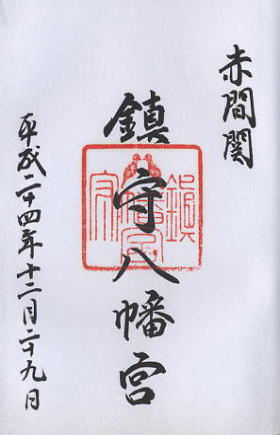 赤間関
鎮守八幡宮
平成二十四年十二月二十九日